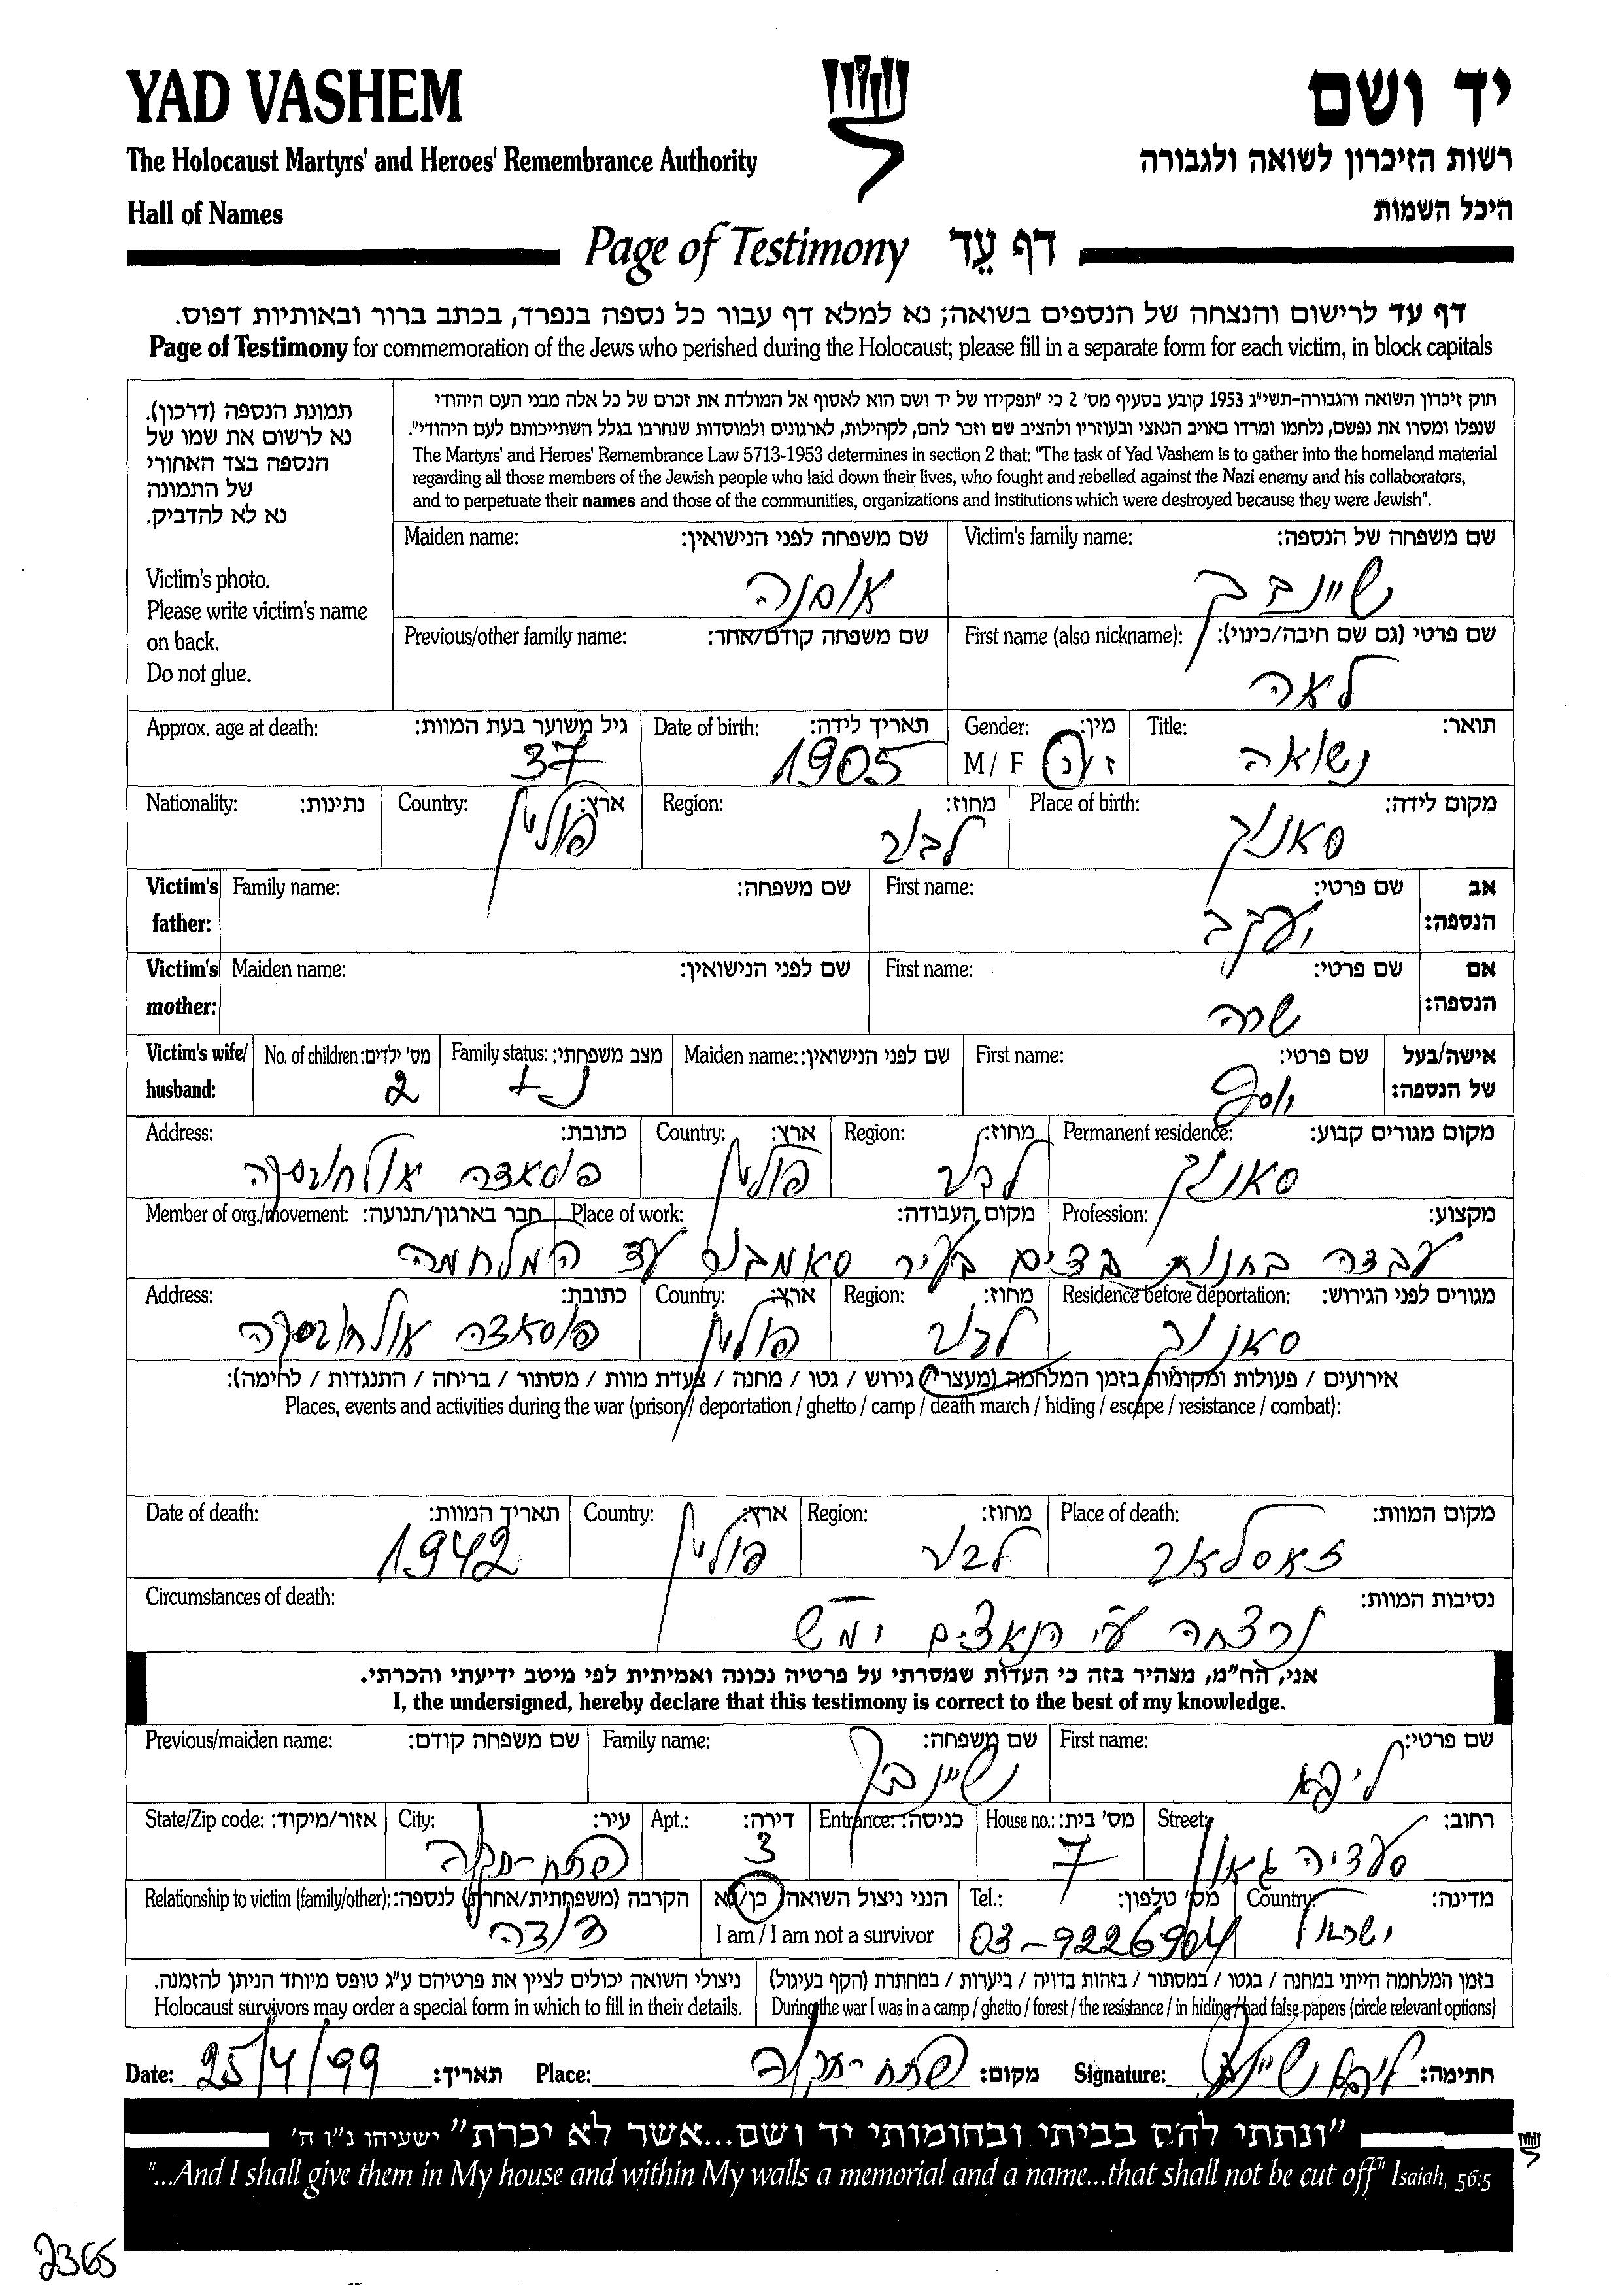 YAD VASHEM
יד ושם
The Holocaust Martyrs' and Heroes' Remembrance Authority
רשות הזיכרון לשואה ולגבורה
Hall of Names
היכל השמות
Page of Testimony דף עֵד
דף עד לרישום והנצחה של הנספים בשואה; נא למלא דף עבור כל נספה בנפרד, בכתב ברור ובאותיות דפוס.
Page of Testimony for commemoration of the Jews who perished during the Holocaust; please fill in a separate form for each victim, in block capitals
תמונת הנספה (דרכון).
נא לרשום את שמו של
הנספה בצד האחורי
של התמונה
נא לא להדביק.
Victim's photo.
Please write victim's name
on back.
Do not glue.
חוק זיכרון השואה והגבורה-תשי"ג 1953 קובע בסעיף מס' 2 כי "תפקידו של יד ושם הוא לאסוף אל המולדת את זכרם של כל אלה מבני העם היהודי
שנפלו ומסרו את נפשם, נלחמו ומרדו באויב הנאצי ובעוזריו ולהציב שם וזכר להם, לקהילות, לארגונים ולמוסדות שנחרבו בגלל השתייכותם לעם היהודי".
The Martyrs' and Heroes' Remembrance Law 5713-1953 determines in section 2 that: "The task of Yad Vashem is to gather into the homeland material
regarding all those members of the Jewish people who laid down their lives, who fought and rebelled against the Nazi enemy and his collaborators,
and to perpetuate their names and those of the communities, organizations and institutions which were destroyed because they were Jewish".
Victim's family name: שם משפחה של הנספה:
שיינבך
Maiden name: שם משפחה לפני הנישואין:
אוסנה
First name (also nickname): שם פרטי (גם שם חיבה/כינוי):
לאה
Previous/other family name: שם משפחה קודם/אחר:
Title: תואר:
נשואה
Gender: מין:
M / F ז / נ
Date of birth: תאריך לידה:
1905
Approx. age at death: גיל משוער בעת המוות:
37
Place of birth: מקום לידה:
סאנוק
Region: מחוז:
לבוב
Country: ארץ:
פולין
Nationality: נתינות:
Victim's father: אב הנספה:
First name: שם פרטי:
יעקב
Family name: שם משפחה:
Victim's mother: אם הנספה:
First name: שם פרטי:
שרה
Maiden name: שם לפני הנישואין:
Victim's wife/ husband: אישה/בעל של הנספה:
First name: שם פרטי:
יוסף
Maiden name: שם לפני הנישואין:
Family status: מצב משפחתי:
נ +
No. of children: מס' ילדים:
2
Permanent residence: מקום מגורים קבוע:
סאנוק
Region: מחוז:
לבוב
Country: ארץ:
פולין
Address: כתובת:
פוסאדה אולחובסקה
Profession: מקצוע:
Place of work: מקום העבודה:
Member of org./movement: חבר בארגון/תנועה:
עבדה בחנות בדים בעיר סאמבור עד המלחמה
Residence before deportation: מגורים לפני הגירוש:
סאנוק
Region: מחוז:
לבוב
Country: ארץ:
פולין
Address: כתובת:
פוסאדה אולחובסקה
אירועים / פעולות ומקומות בזמן המלחמה (מעצר / גירוש / גטו / מחנה / צעדת מוות / מסתור / בריחה / התנגדות / לחימה):
Places, events and activities during the war (prison / deportation / ghetto / camp / death march / hiding / escape / resistance / combat):
Place of death: מקום המוות:
זאסלאב
Region: מחוז:
לבוב
Country: ארץ:
פולין
Date of death: תאריך המוות:
1942
Circumstances of death: נסיבות המוות:
נרצחה ע"י הנאצים ימ"ש
אני, הח"מ, מצהיר בזה כי העדות שמסרתי על פרטיה נכונה ואמיתית לפי מיטב ידיעתי והכרתי.
I, the undersigned, hereby declare that this testimony is correct to the best of my knowledge.
First name: שם פרטי:
ליפא
Family name: שם משפחה:
שיינבך
Previous/maiden name: שם משפחה קודם:
Street: רחוב:
סעדיה גאון
House no.: מס' בית:
7
Entrance: כניסה:
Apt.: דירה:
3
City: עיר:
פתח-תקוה
State/Zip code: אזור/מיקוד:
Country: מדינה:
ישראל
Tel.: מס' טלפון:
03-9226904
הנני ניצול השואה כן/לא
I am / I am not a survivor
Relationship to victim (family/other): הקרבה (משפחתית/אחרת) לנספה:
דודה
בזמן המלחמה הייתי במחנה / בגטו / במסתור / בזהות בדויה / ביערות / במחתרת (הקף בעיגול)
During the war I was in a camp / ghetto / forest / the resistance / in hiding / had false papers (circle relevant options)
ניצולי השואה יכולים לציין את פרטיהם ע"ג טופס מיוחד הניתן להזמנה.
Holocaust survivors may order a special form in which to fill in their details.
Date: 25/4/99 תאריך: Place: פתח-תקוה מקום: Signature: ליפא שיינבך חתימה:
"ונתתי להם בביתי ובחומותי יד ושם...אשר לא יכרת" ישעיהו נ"ו ה'
"...And I shall give them in My house and within My walls a memorial and a name...that shall not be cut off" Isaiah, 56:5
2365